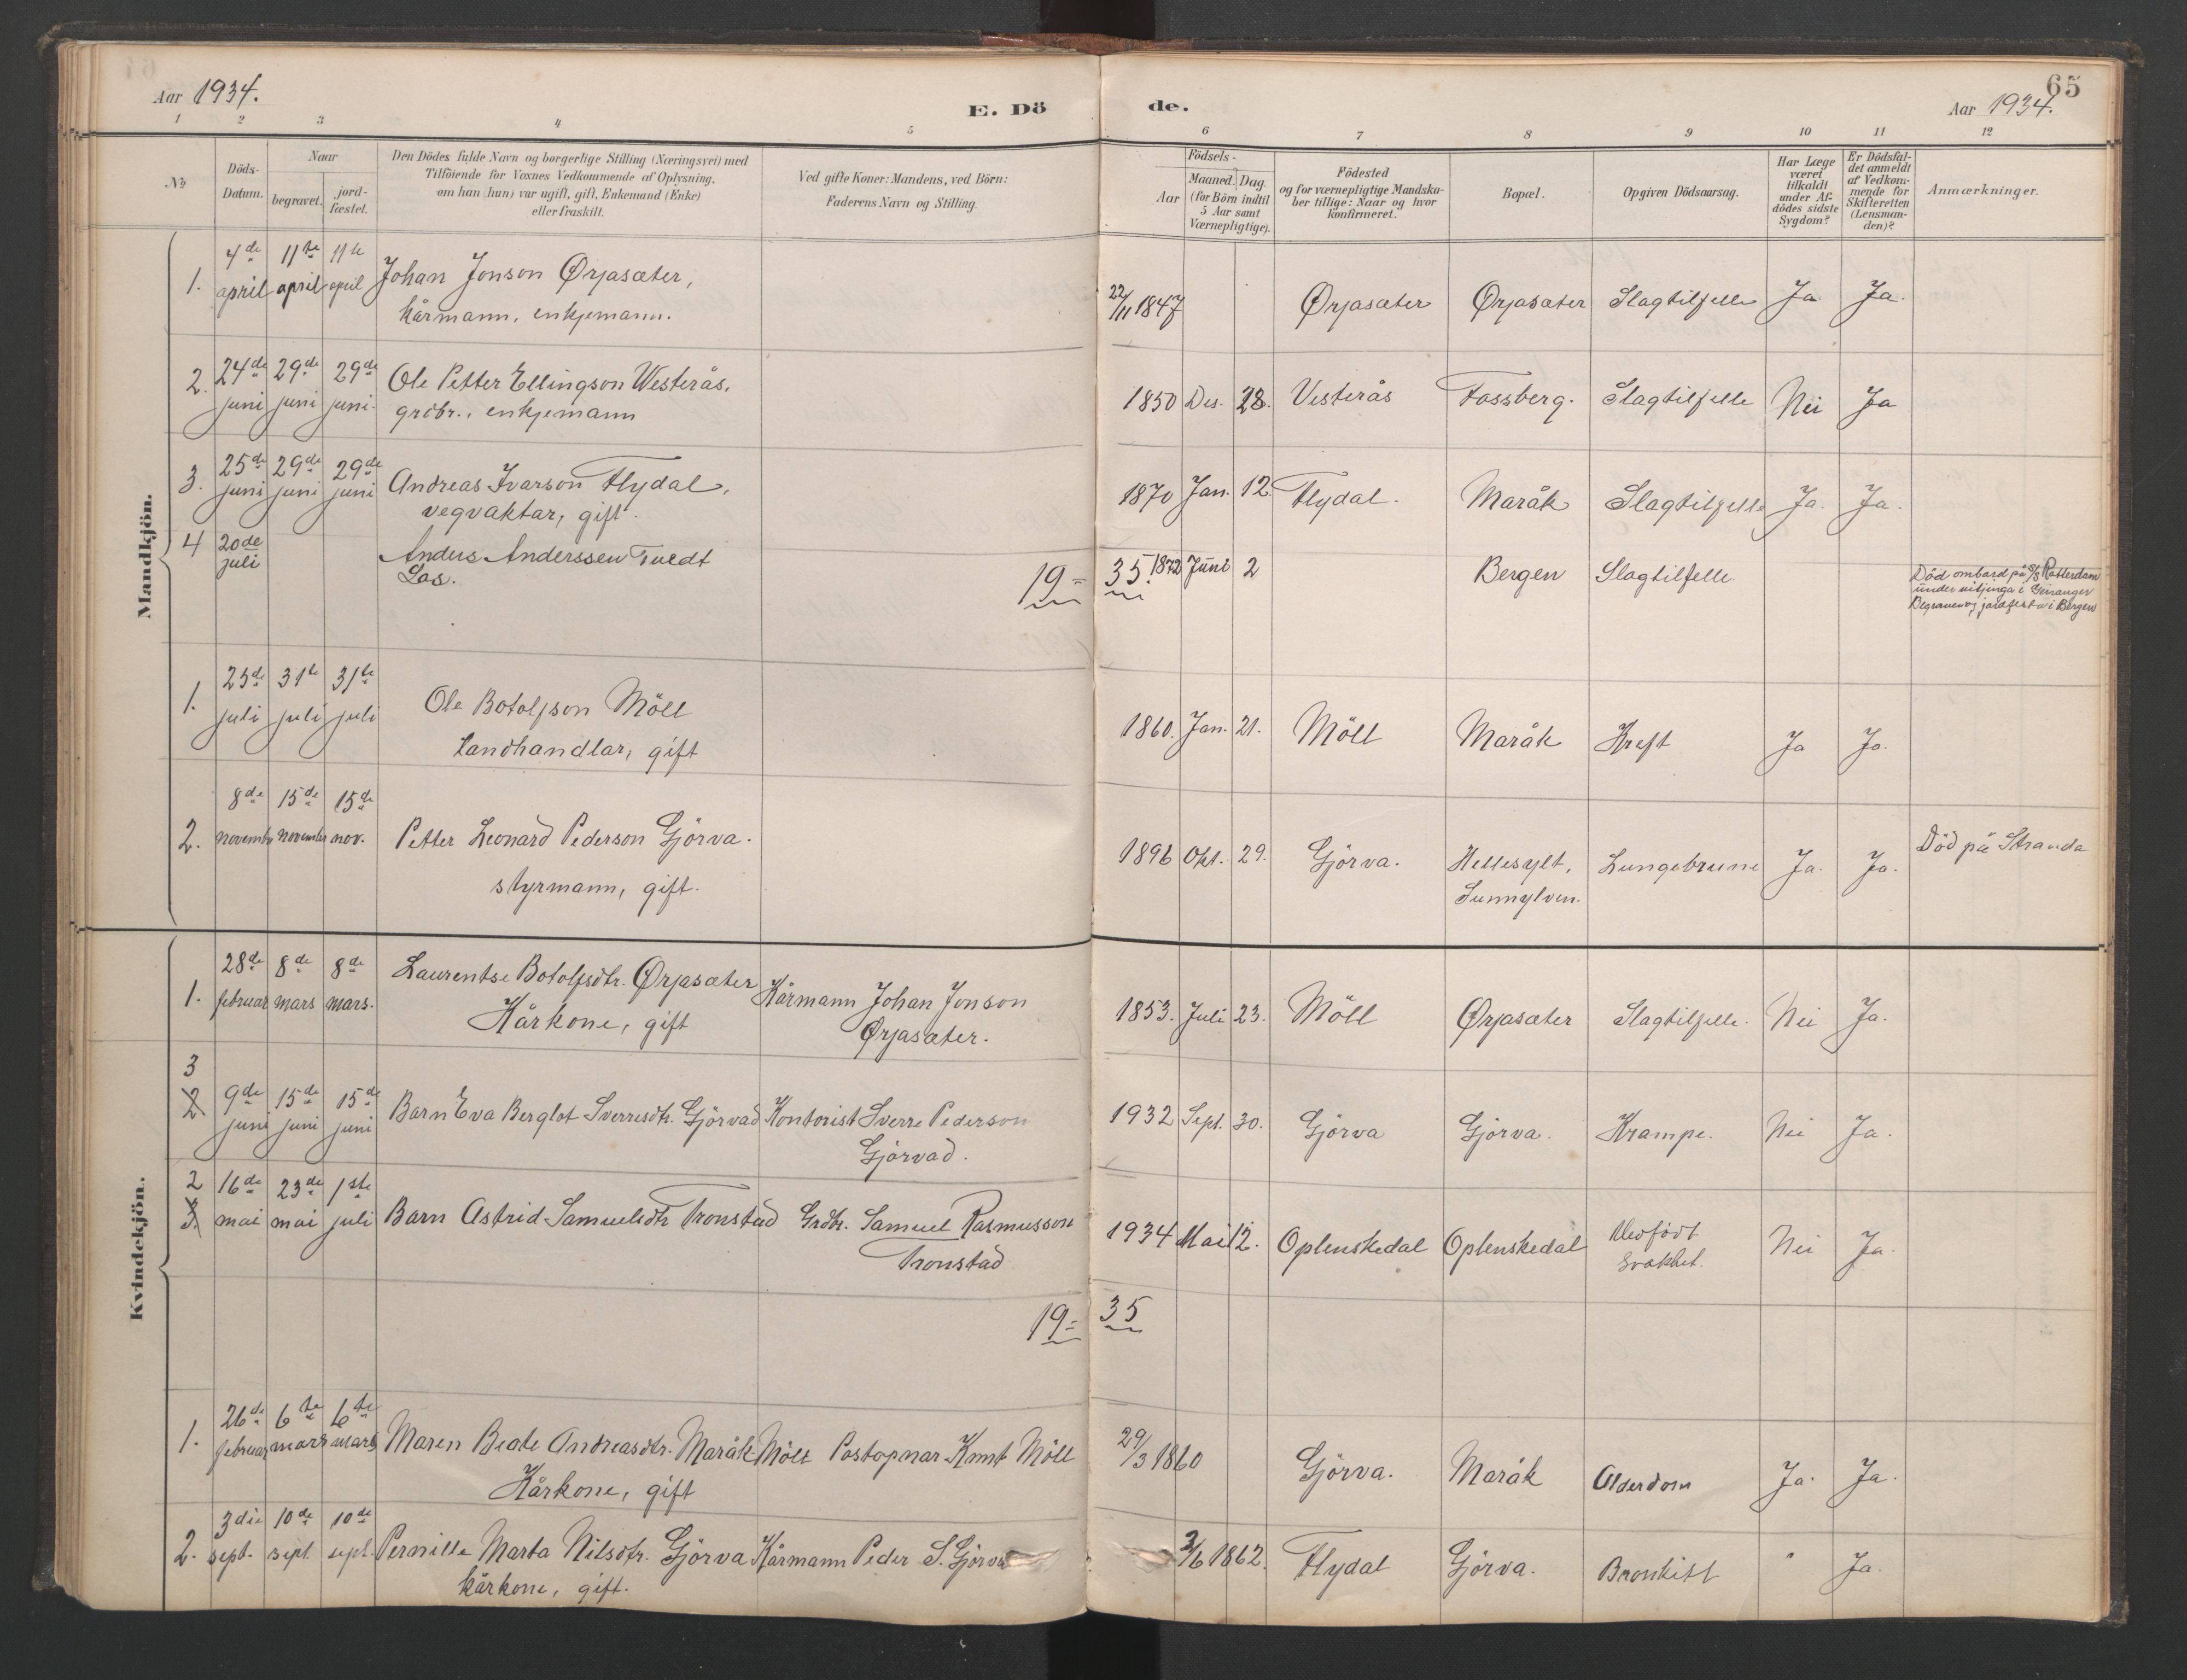 Aar 1934.
E. Dö
de.
65
Aar 1934.
1 2 3 4 5 6 7 8 9 10 11 12
№
Döds-
Datum.
Naar
begravet.
jord-
fæstet.
Den Dödes fulde Navn og borgerlige Stilling (Næringsvei) med
Tilföiende for Voxnes Vedkommende af Oplysning,
om han (hun) var ugift, gift, Enkemand (Enke)
eller fraskilt.
Ved gifte Koner: Mandens, ved Börn:
Faderens Navn og Stilling.
Födsels-
Aar
Maaned.
Dag
(for Börn indtil
5 Aar samt
Værnepligtige).
Födested
og for værnepligtige Mandska-
ber tillige: Naar og hvor
konfirmeret.
Bopæl.
Opgiven Dödsaarsag.
Har Læge
været
tilkaldt
under Af-
dödes sidste
Sygdom?
Er Dödsfal-
det anmeldt
af Vedkom-
mende for
Skifteretten
(Lensman-
den)?
Anmærkninger.
Mandkjön.
4de 11te 11te
1. april april april Johan Jonson Ørjasæter,
kårmann, enkjemann.
22/11 1847 Ørjasæter Ørjasæter Slagtilfelle Ja Ja.
24de 29de 29de
2. juni juni juni. Ole Petter Ellingson Westerås,
grdbr., enkjemann
1850 Des. 28. Vesterås Fossberg. Slagtilfelle Nei Ja
25de 29de 29de
3. juni juni juni Andreas Ivarson Flydal,
vegvaktar, gift.
1870 Jan. 12. Flydal. Maråk Slagtilfelle Ja. Ja.
4 20de
juli
Anders Anderssen Tvedt
Los.
19=
35.
1872 Juni 2 Bergen Slagtilfelle.
Död ombord på S/S Rotterdam
under vitjinga i Geiranger
Begraven og jordfesta i Bergen
23de 31te 31te
1. juli juli juli Ole Botolfson Möll
landhandlar, gift
1860. Jan. 21. Möll Maråk Kreft Ja Ja.
8de 15de 15de
2. november november nov. Petter Leonard Pederson Gjörva.
styrmann, gift.
1896 Okt. 29. Gjörva. Hellesylt, Lungebrune Ja. Ja. Död på Stranda
Sunnylven.
Kvindekjön.
28de 8de 8de
1. februar mars mars. Laurentse Botolfsdtr. Ørjasæter Kårmann Johan Jonson
Kårkone, gift Ørjasæter.
1853. Juli 23. Möll Ørjasæter Slagtilfelle. Nei Ja.
3
2 9de 15de 15de
juni juni juni Barn Eva Berglot Sverresdtr. Gjörvad Kontorist Sverre Pederson
Gjörvad.
1932 Sept. 30. Gjörva Gjörva. Krampe. Nei Ja.
2 16de 23de 1ste
3. mai mai juli Barn Astrid Samuelsdtr Tronstad Grdbr. Samuel Rasmusson
Tronstad
1934 Mai 12. Oplenskedal Oplenskedal Medfödt Nei Ja.
svakhet.
19=
35
26de 6te 6te
1. februar mars mars Maren Beate Andreasdtr. Maråk-Möll Postopnar Knut Möll
Kårkone, gift
29/3 1860 Gjörva. Maråk Alderdom Ja. Ja.
3die 10de 10de
2. sept. sept. sept. Pernille Marta Nilsdtr. Gjörva Kårmann Peder S. Gjörva
kårkone, gift.
3/6 1862. Flydal Gjörva. Bronkitt " Ja.